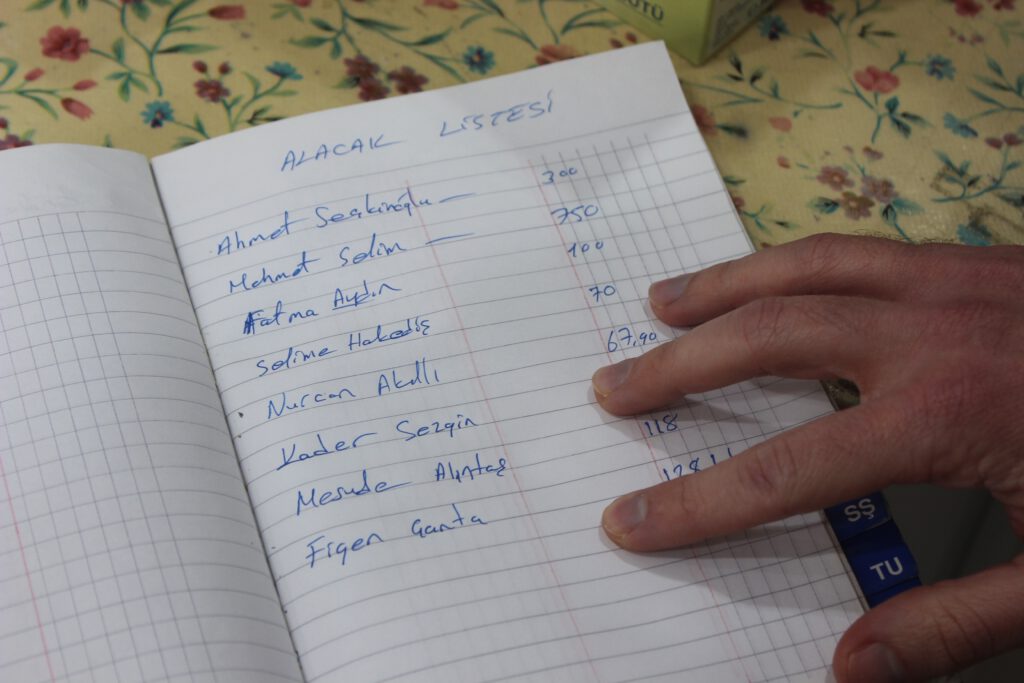 ÜTÜ
ALACAK LİSTESİ
Ahmet Seçkinoğlu — 300
Mehmet Selim — 750
Fatma Aydın 100
Selime Hakediş 70
Nurcan Akıllı 67,90
Kader Sezgin
Mesude Alıntaş 118
Ergen Çanta 128
SŞ
TU